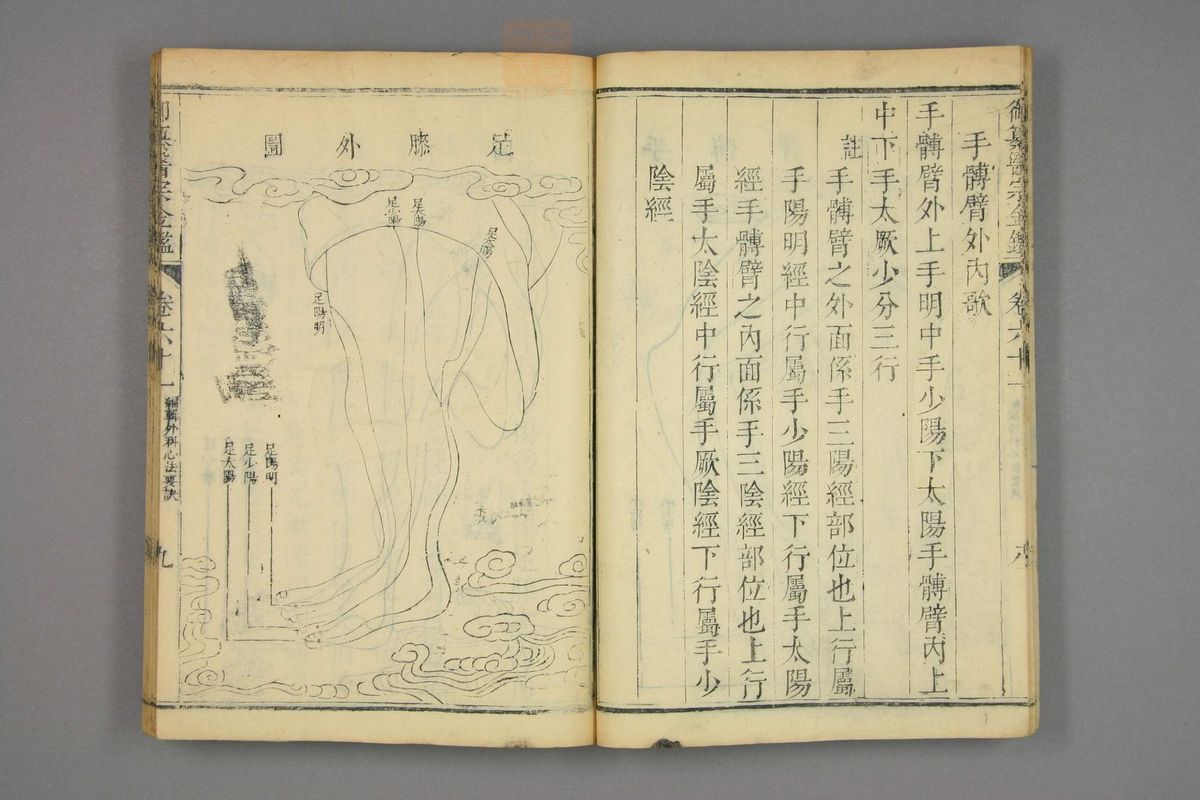 御纂醫宗金鑑
卷六十一
八
手髆臂外內歌
手髆臂外上手明中手少陽下太陽手髆臂內上
中下手太厥少分三行
註
手髆臂之外面係手三陽經部位也上行屬
手陽明經中行屬手少陽經下行屬手太陽
經手髆臂之內面係手三陰經部位也上行
屬手太陰經中行屬手厥陰經下行屬手少
陰經
足膝外圖
足太陽
足少陽
足陽明
足陽明
足少陽
足太陽
御纂醫宗金鑑
卷六十一
編輯外科心法要訣
九